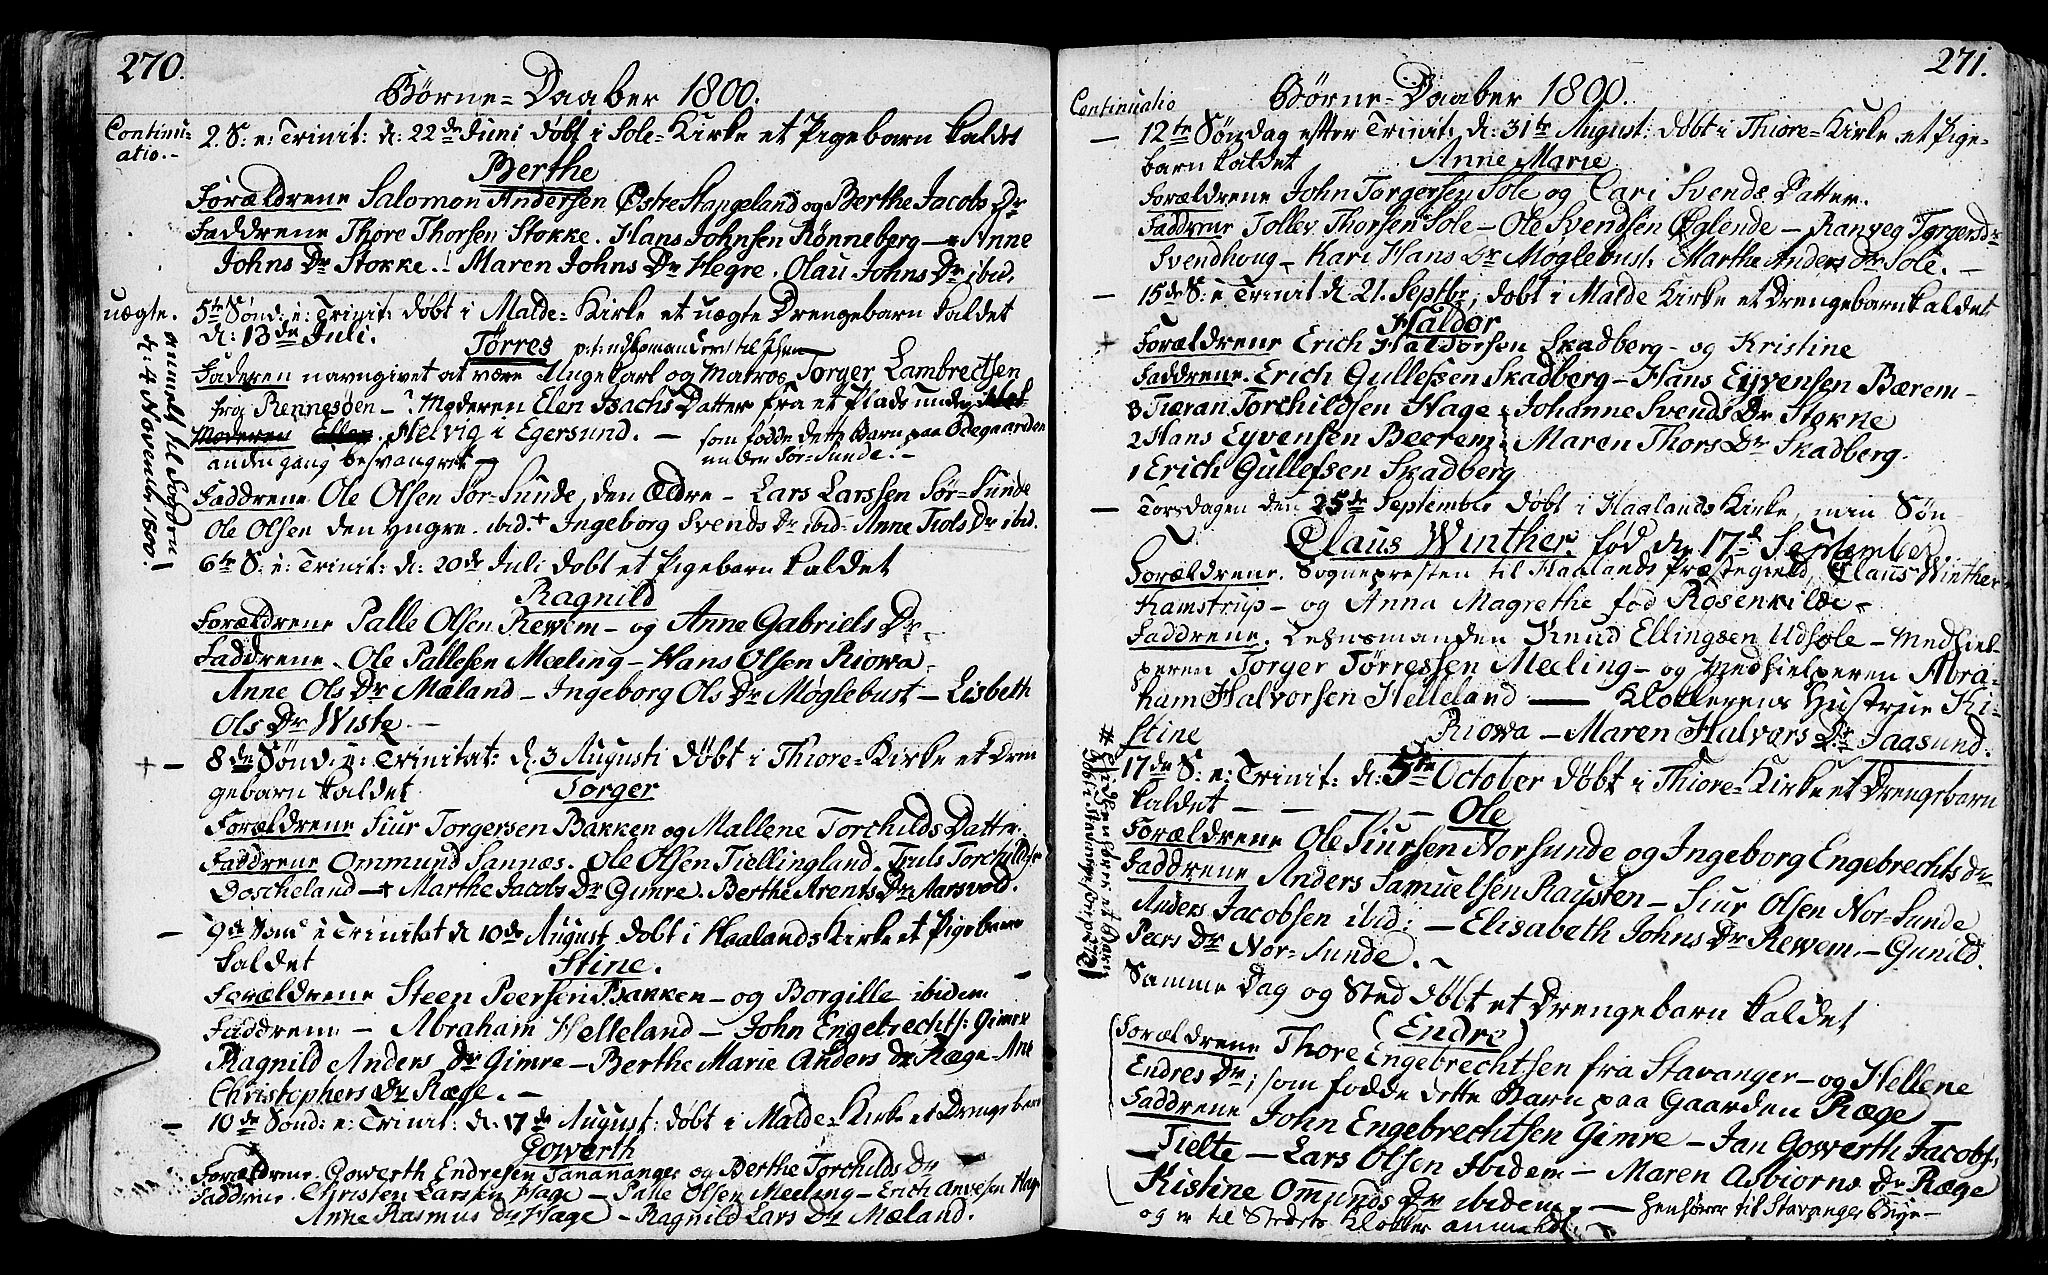 270.
Børne=Daaber 1800.
Continu=
atio.-
2. S: e: Trinit: d: 22de Juni døbt i Sole=Kirke et Pigebarn kaldet
Berthe
Forældrene Salomon Andersen Østre Stangeland og Berthe Jacobs Dr
Faddrene Thore Thorsen Stokke. Hans Johnsen Rønneberg — Anne
Johns Dr Stokke. Maren Johns Dr Hegre. Olau Johns Dr ibid.
uægte.
5te Sønd: e: Trinit: døbt i Malde=Kirke et uægte Drengebarn kaldet
d: 13de Juli.
Tørres
Faderen navngivet at være Ungekarl og Matros Torger Lambrechtsen
fra Rennesøen — Moderen Elen Isachs Datter fra et Plads under
Moderen Helvig i Egersund. — som fødde dette Barn paa Ødegaarden
anden gang besvangret — under Sør=Sunde. —
anmelt til Fogden
d: 4 Novembr 1800.
Faddrene Ole Olsen Sør=Sunde, den Ældre — Lars Larssen Sør=Sunde
Ole Olsen den yngre. ibid. + Ingeborg Svends Dr ibid: Anne Tiols Dr ibid.
6te S: e: Trinit: d: 20de Juli døbt et Pigebarn kaldet
Ragnild
Forældrene Palle Olsen Rewem — og Anne Gabriels Dr.
Faddrene Ole Pallesen Meeling — Hans Olsen Riowa
Anne Ols Dr Mæland — Ingeborg Ols Dr Møglebust — Lisbeth
Ols Dr Wiste. —
+ — 8de Sønd: e: Trinitat: d. 3 Augusti døbt i Thiore=Kirke et Dren
gebarn kaldet Torger
Forældrene Siur Torgersen Bakken og Mallene Torchilds Datter.
Faddrene Ommund Sannæs. Ole Olsen Tiellingland. Truls Torchilds:
Goscheland — + Marthe Jacobs Dr Gimre. Berthe Arents Dr Aarsvold.
— 9de Sønd e Trinitat d 10de August døbt i Haalands Kirke et Pigebarn
kaldet Stine.
Forældrene Steen Peersen Bakken — og Borgille ibidem —
Faddrene — Abraham Helleland — John Engebrechts: Gimre
Ragnild Anders Dr Gimre — Berthe Marie Anders Dr Ræge — Ane
Christophers Dr Ræge. —
— 10de Sønd: e: Trinit: d. 17de August: døbt i Malde=Kirke et Drengebarn
Gowerth
Forældrene. Gowerth Endresen Tananänger og Berthe Torchilds Dr
Faddrene. Christen Larssen Hage — Palle Olsen Meeling — Erich Anvesen Hage
Anne Rasmus Dr Hage — Ragnild Lars Dr Mæland.
271.
Børne=Daaber 1800.
Continuatio
— 12te Søndag efter Trinit: d: 31te August: døbt i Thiore=Kirke et Pige=
barn kaldet Anne Marie
Forældrene John Torgersen Sole og Cari Svends Datter.
Faddrene Tollev Thorsen Sole — Ole Svendsen Øglende — Ranveg Torgersdr
Svendhoug — Kari Hans Dr Møglebust: Marthe Anders Dr Sole. —
— 15de S: e Trinit d 21. Septbr; døbt i Malde Kirke et Drengebarn kaldet
Haldor
+ Forældrene Erich Haldorsen Skadberg — og Kristine
Faddrene. Erich Gullefsen Skadberg — Hans Eyvensen Bærem —
3 Tieran Torchildsen Hage : Johanne Svends Dr Stokke
2 Hans Eyvensen Beerem : Maren Thors Dr Skadberg.
1 Erich Gullefsen Skadberg
— Torsdagen den 25de September døbt i Haalands Kirke, min Søn
Claus Winther. fød d. 17d September
Forældrene. Sognepresten til Haalands Præstegield, Claus Winther
Kamstrup — og Anna Magrethe fød Rosenkilde.
Faddrene. Lensmanden Knud Ellingsen Udsole — Medhiel=
peren Torger Tørressen Meeling — og Medhielperen Abra=
ham Halvorsen Helleland — Klokkerens Hustrue Ki=
stine Riowa — Maren Halvors Dr Jaasund.
17de S: e: Trinit: d: 5te October døbt i Thiore=Kirke et Drengebarn
kaldet — — — Ole
Forældrene Ole Siursen Norsunde og Ingeborg Engebrechts Dr
Faddrene Anders Samuelsen Raugsten — Siur Olsen Nor=Sunde
Anders Jacobsen ibid: — Elisabeth Johns Dr Rewem. — Gunild
Peers Dr Nor=Sunde. —
Samme Dag og Sted døbt et Drengebarn kaldet
(Endre)
Forældrene Thore Engebrechtsen fra Stavanger — og Hellene
Endres Dr; som fødde dette Barn paa Gaarden Ræge
Faddrene John Engebrechtsen Gimre — Jan Gowerth Jacobs:
— Tielte — Lars Olsen Ibidem — Maren Asbiorns Dr Ræge
Kistine Ommunds Dr ibidem. — henhører til Stavanger Bye —
og er til Stedets Klokker anmeldt.